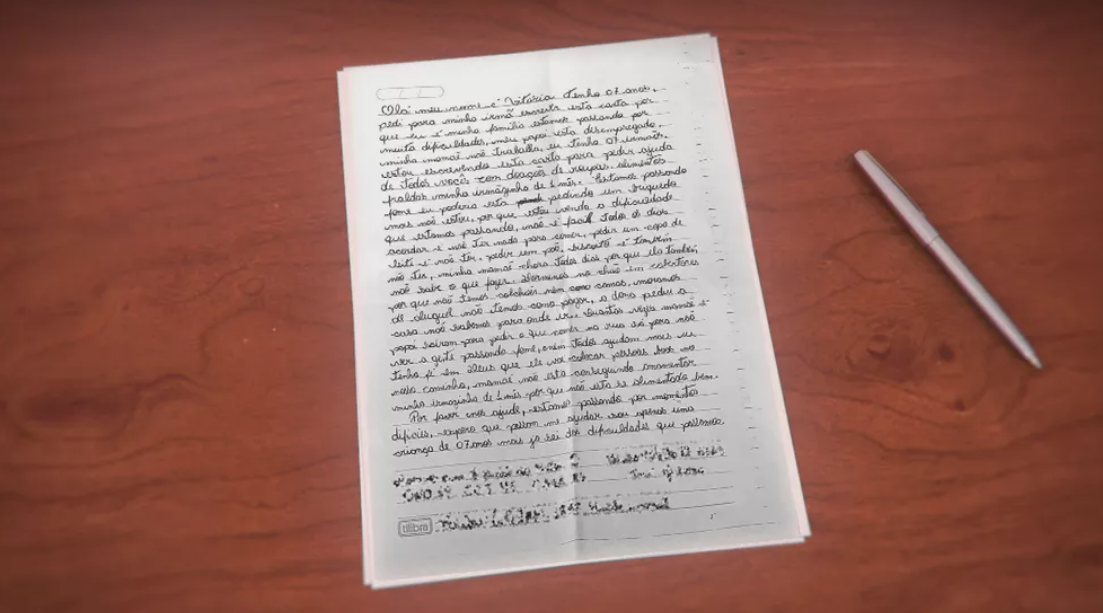 Olá meu nome é Vitória tenho 07 anos,
pedi para minha irmã escrever esta carta por
que eu e minha família estamos passando por
muita dificuldades, meu papai esta desempregado,
minha mamai não trabalha, eu tenho 07 irmãos.
estou escrevendo esta carta para pedir ajuda
de todos vocês com doações de roupas, alimentos
fraldas minha irmãzinha de 1 mês. Estamos passando
fome eu poderia esta pedindo um briquedo
mais não estou, por que estou vendo a dificuldade
que estamos passando, não é facil todos os dias
acordar e não ter nada para comer, pedir um copo de
leite e não ter, pedir um pão, biscoito e também
não ter, minha mamai chora todos dias por que ela também
não sabe o que fazer. dormimos no chão em cobertores
por que não temos colchões nem camas, moramos
de aluguel não temos como pagar, a dona pediu a
casa não sabemos para onde ir. Quantas vezes mamai e
papai sairam para pedir o que comer na rua só para não
ver a gente passando fome, nem todos ajudam mais eu
tenho fé em Deus que ele vai colocar pessoas boas no
nosso caminho, mamai não esta conseguindo amamentar
minha irmazinha de 1 mês por que não esta se alimentado bem.
Por favor nos ajude, estamos passando por momentos
dificeis, espero que possam me ajudar sou apenas uma
criança de 07 anos mais ja sei das dificuldades que passamos.
tilibra